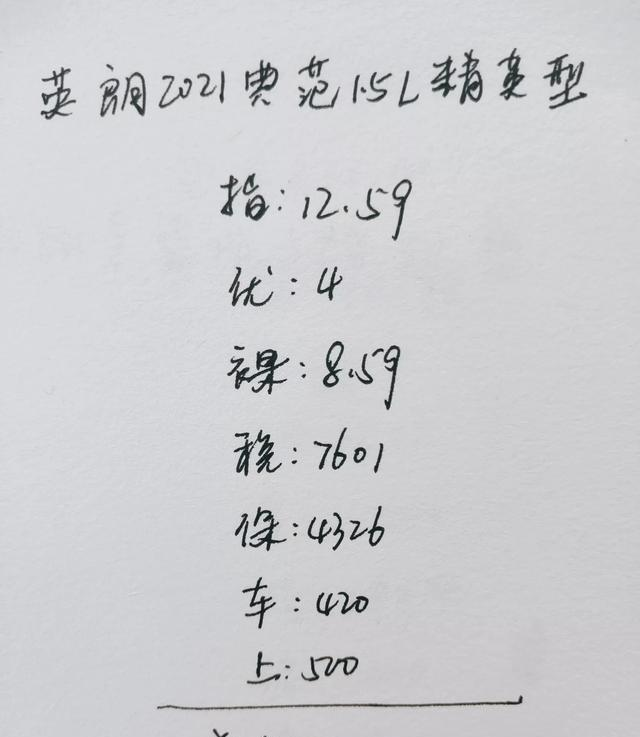 英朗2021典范1.5L精英型
指：12.59
优：4
裸：8.59
税：7601
保：4326
车：420
上：500